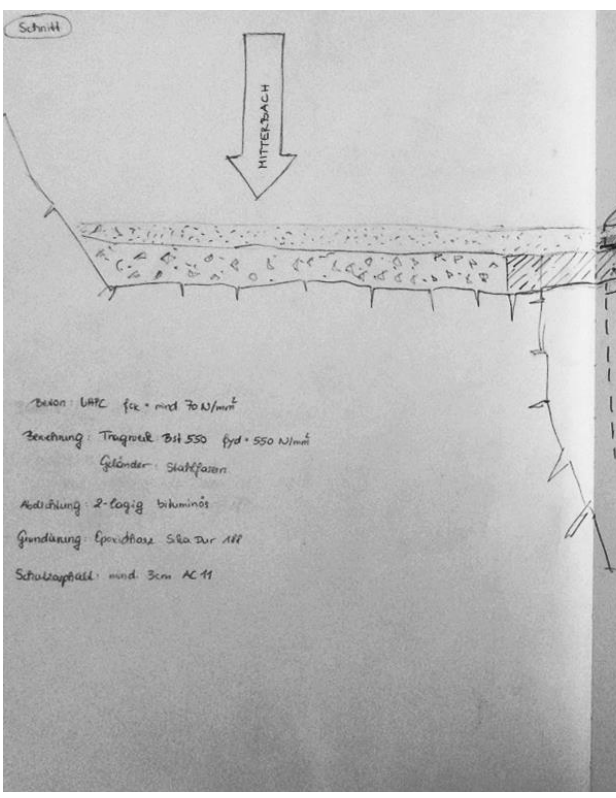 Schnitt
MITTERBACH
Beton: UHPC fck = mind 70 N/mm²
Bewehrung: Tragwerk Bst 550 fyd = 550 N/mm²
Geländer: Stahlfasern
Abdichtung: 2-lagig bituminös
Grundierung: Epoxidharz Sika Dur 188
Schutzasphalt: mind. 3cm AC 11